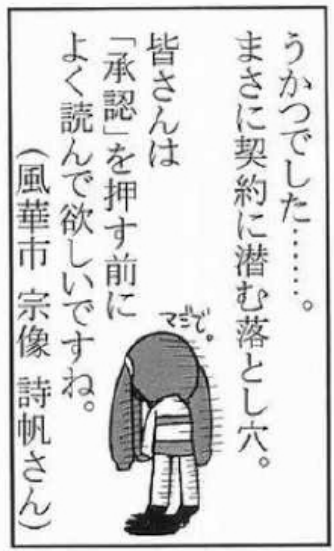 うかつでした……。
まさに契約に潜む落とし穴。
皆さんは
「承認」を押す前に
よく読んで欲しいですね。
(風華市 宗像 詩帆さん)
マジで。